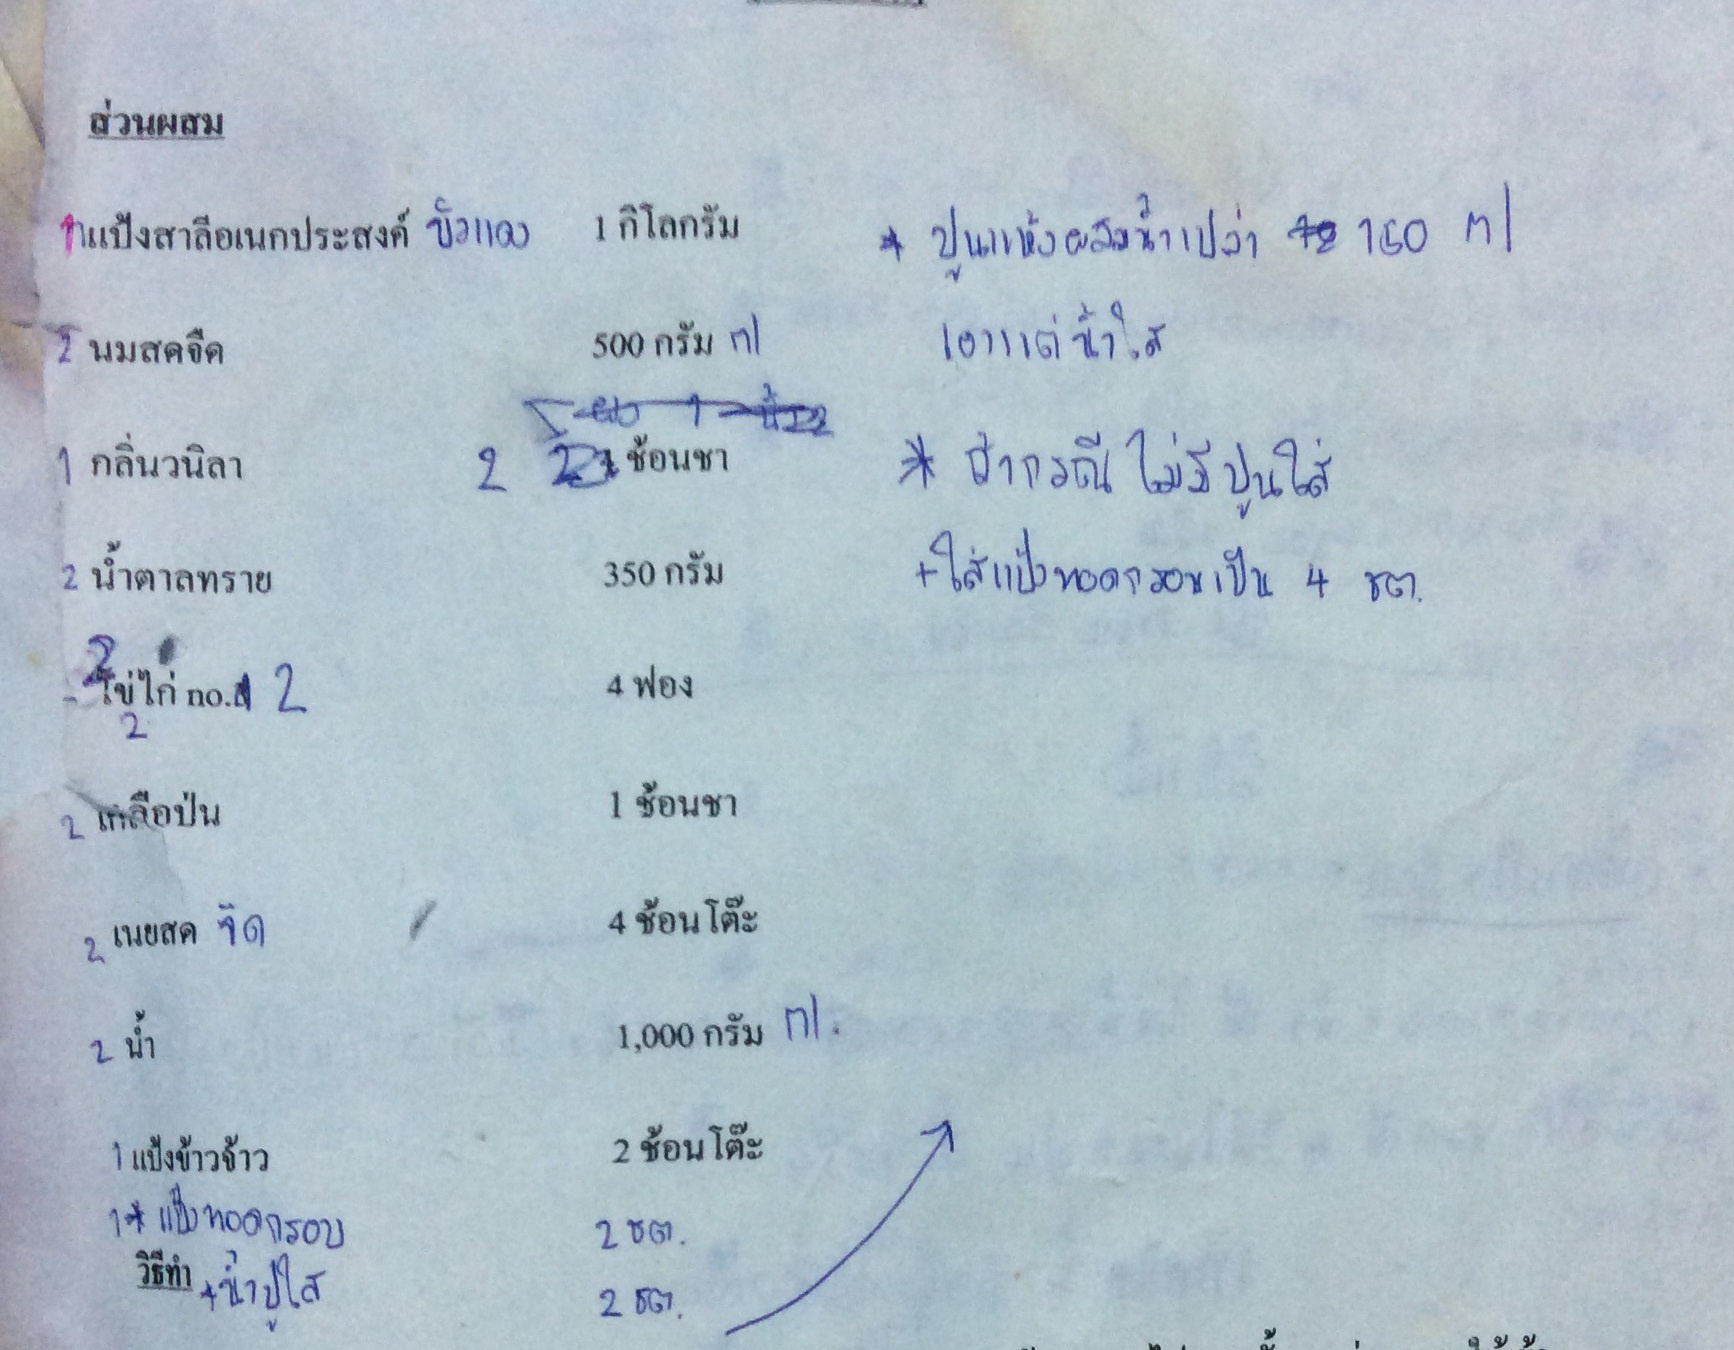 ส่วนผสม
1 แป้งสาลีอเนกประสงค์ บัวแดง 1 กิโลกรัม * ปูนแห้งผสมน้ำเปล่า 150 ml
2 นมสดจืด 500 กรัม ml เอาแต่น้ำใส
1 กลิ่นวนิลา 2 ช้อนชา * ถ้ากรณีไม่มีปูนใส่
2 น้ำตาลทราย 350 กรัม +ใส่แป้งทอดกรอบเป็น 4 ชต.
2 ไข่ไก่ no. 2 4 ฟอง
2
2 เกลือป่น 1 ช้อนชา
2 เนยสด จืด 4 ช้อนโต๊ะ
2 น้ำ 1,000 กรัม ml.
1 แป้งข้าวจ้าว 2 ช้อนโต๊ะ
1* แป้งทอดกรอบ 2 ชต.
วิธีทำ +น้ำปูใส 2 ชต.